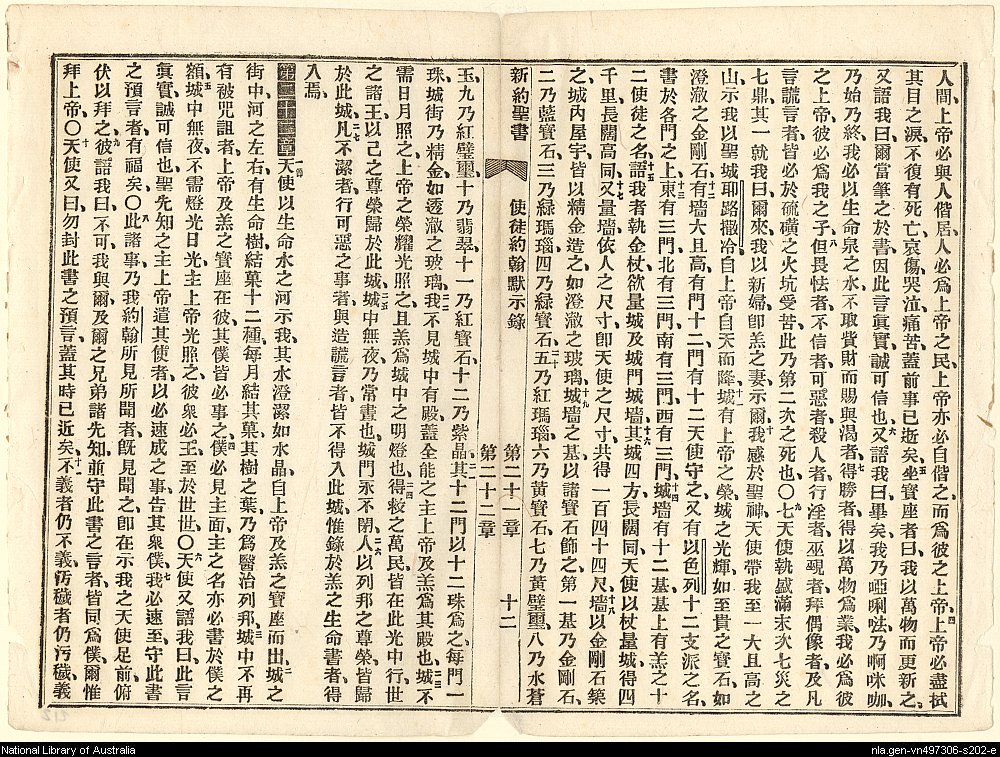 人間、上帝必與人偕居、人必爲上帝之民、上帝亦必自偕之、而爲彼之上帝、四上帝必盡栻
其目之淚、不復有死亡、哀傷、哭泣、痛苦、蓋前事已逝矣、五坐寶座者曰、我以萬物而更新之、
又語我曰、爾當筆之於書、因此言眞實、誠可信也、六又語我曰、畢矣、我乃啞唎𠻗、乃啊咪㖠、
乃始乃終、我必以生命泉之水、不取貲財、而賜與渴者、七得勝者、得以萬物爲業、我必爲彼
之上帝、彼必爲我之子、八但畏怯者、不信者、可惡者、殺人者、行淫者、巫覡者、拜偶像者、及凡
言謊言者、皆必於硫磺之火坑受苦、此乃第二次之死也、〇九七天使執盛滿末次七災之
七鼎、其一就我曰、爾來、我以新婦、卽羔之妻示爾、十我感於聖神、天使帶我至一大且高之
山、示我以聖城耶路撒冷、自上帝自天而降、十一城有上帝之榮、城之光輝、如至貴之寶石、如
澄澈之金剛石、十二有墻大且高、有門十二、門有十二天使守之、又有以色列十二支派之名、
書於各門之上、十三東有三門、北有三門、南有三門、西有三門、十四城墻有十二基、基上有羔之十
二使徒之名、十五語我者、執金杖、欲量城、及城門、城墻、十六其城四方、長闊同、天使以杖量城、得四
千里、長闊高同、十七又量墻、依人之尺寸、卽天使之尺寸、共得一百四十四尺、十八墻以金剛石築
之、城內屋宇、皆以精金造之、如澄澈之玻璃、十九城墻之基、以諸寶石飾之、第一基乃金剛石、
二乃藍寶石、三乃綠瑪瑙、四乃綠寶石、二十五乃紅瑪瑙、六乃黃寶石、七乃黃璧璽、八乃水蒼
新約聖書 使徒約翰默示錄 第二十一章 第二十二章 十二
玉、九乃紅璧璽、十乃翡翠、十一乃紅寶石、十二乃紫晶、二一其十二門、以十二珠爲之、每門一
珠、城街乃精金、如透澈之玻璃、二二我不見城中有殿、蓋全能之主上帝及羔、爲其殿也、二三城不
需日月照之、上帝之榮耀光照之、且羔爲城中之明燈也、二四得救之萬民、皆在此光中行、世
之諸王、以己之尊榮、歸於此城、二五城中無夜、乃常晝也、城門永不閉、二六人以列邦之尊榮、皆歸
於此城、二七凡不潔者、行可惡之事者、與造謊言者、皆不得入此城、惟錄於羔之生命書者、得
入焉、
第二十二章一天使以生命水之河示我、其水澄潔如水晶、自上帝及羔之寶座而出、二城之
街中、河之左右、有生命樹、結菓十二種、每月結其菓、其樹之葉、乃爲醫治列邦、三城中不再
有被咒詛者、上帝及羔之寶座在彼、其僕皆必事之、四僕必見主面、主之名、亦必書於僕之
額、五城中無夜、不需燈光日光、主上帝光照之、彼衆必王、至於世世、〇六天使又語我曰、此言
眞實、誠可信也、聖先知之主上帝、遣其使者、以必速成之事、告其衆僕、七我必速至、守此書
之預言者有福矣、〇八此諸事、乃我約翰所見所聞者、旣見聞之、卽在示我之天使足前、俯
伏以拜之、九彼語我曰、不可、我與爾及爾之兄弟諸先知、並守此書之言者、皆同爲僕、爾惟
拜上帝、〇十天使又曰、勿封此書之預言、蓋其時已近矣、十一不義者仍不義、汚穢者仍汚穢、義
National Library of Australia
nla.gen-vn497306-s202-e